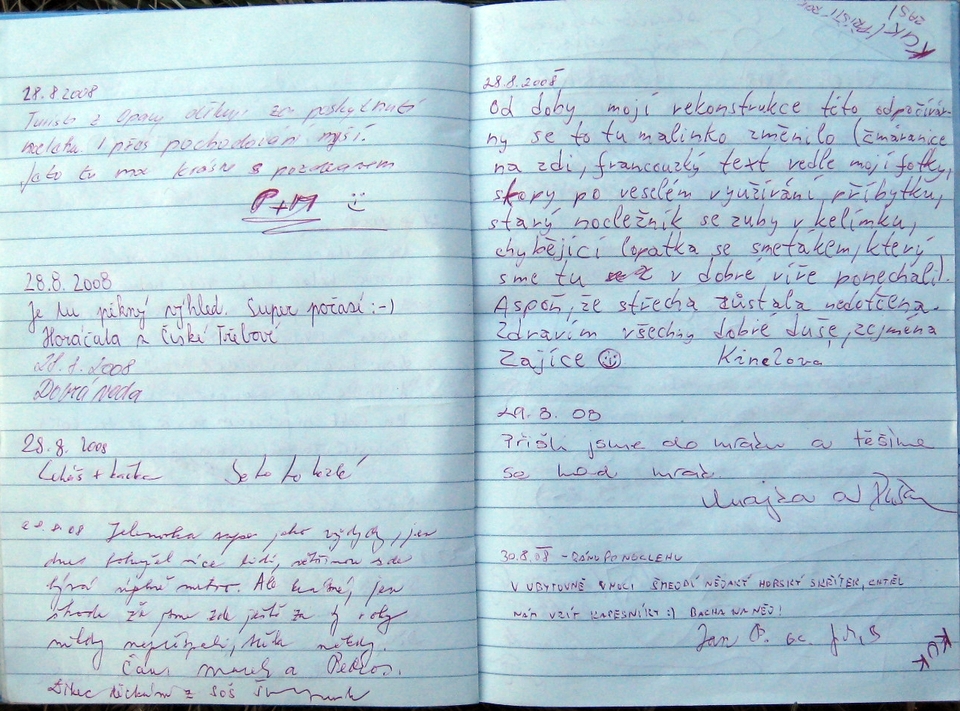 28.8.2008
Turisté z Opavy děkují za poskytnutí
noclehu i přes pochodování myší.
Jsto tu má krásu s pozdravem
P+M :)
28.8.2008
Je tu pěkný výhled. Super počasí :-)
Horáčata z České Třebové
28.8.2008
Dobrá voda
28.8. 2008
Lukáš + Kačka Je to tu hezké
28.8.08 Jelenovka super jako vždycky, jen
dnes bohužel více lidí, většinou zde
bývá úplně mrtvo. Ale krásné, jen
škoda že jsme zde ještě za ty roky
nikdy nepřespali, snad někdy.
Čau Marek a
z SOŠ
KUK (PŘÍŠTÍ ROK
ZAS)
28.8.2008
Od doby mojí rekonstrukce této odpočívár-
ny se to tu malinko změnilo (čmáranice
na zdi, francouzský text vedle mojí fotky,
skopy po veselém využívání příbytku,
starý nocležník se zuby v kelímku,
chybějící lopatka se smetákem, který
sme tu v dobré víře ponechali).
Aspoň, že střecha zůstala nedotčena.
Zdravím všechny dobré duše, zejména
Zajíce ☺ Kinclová
29.8.08
Přišli jsme do mraku a těšíme
se nad mrak.
Majka a
30.8.08 - RÁNO PO NOCLEHU
V UBYTOVNĚ V NOCI ŠMEJDÍ NĚJAKÝ HORSKÝ SKŘÍTEK, CHTĚL
NÁM VZÍT KAPESNÍKY :) BACHA NA NĚJ!
Jan P.
KUK